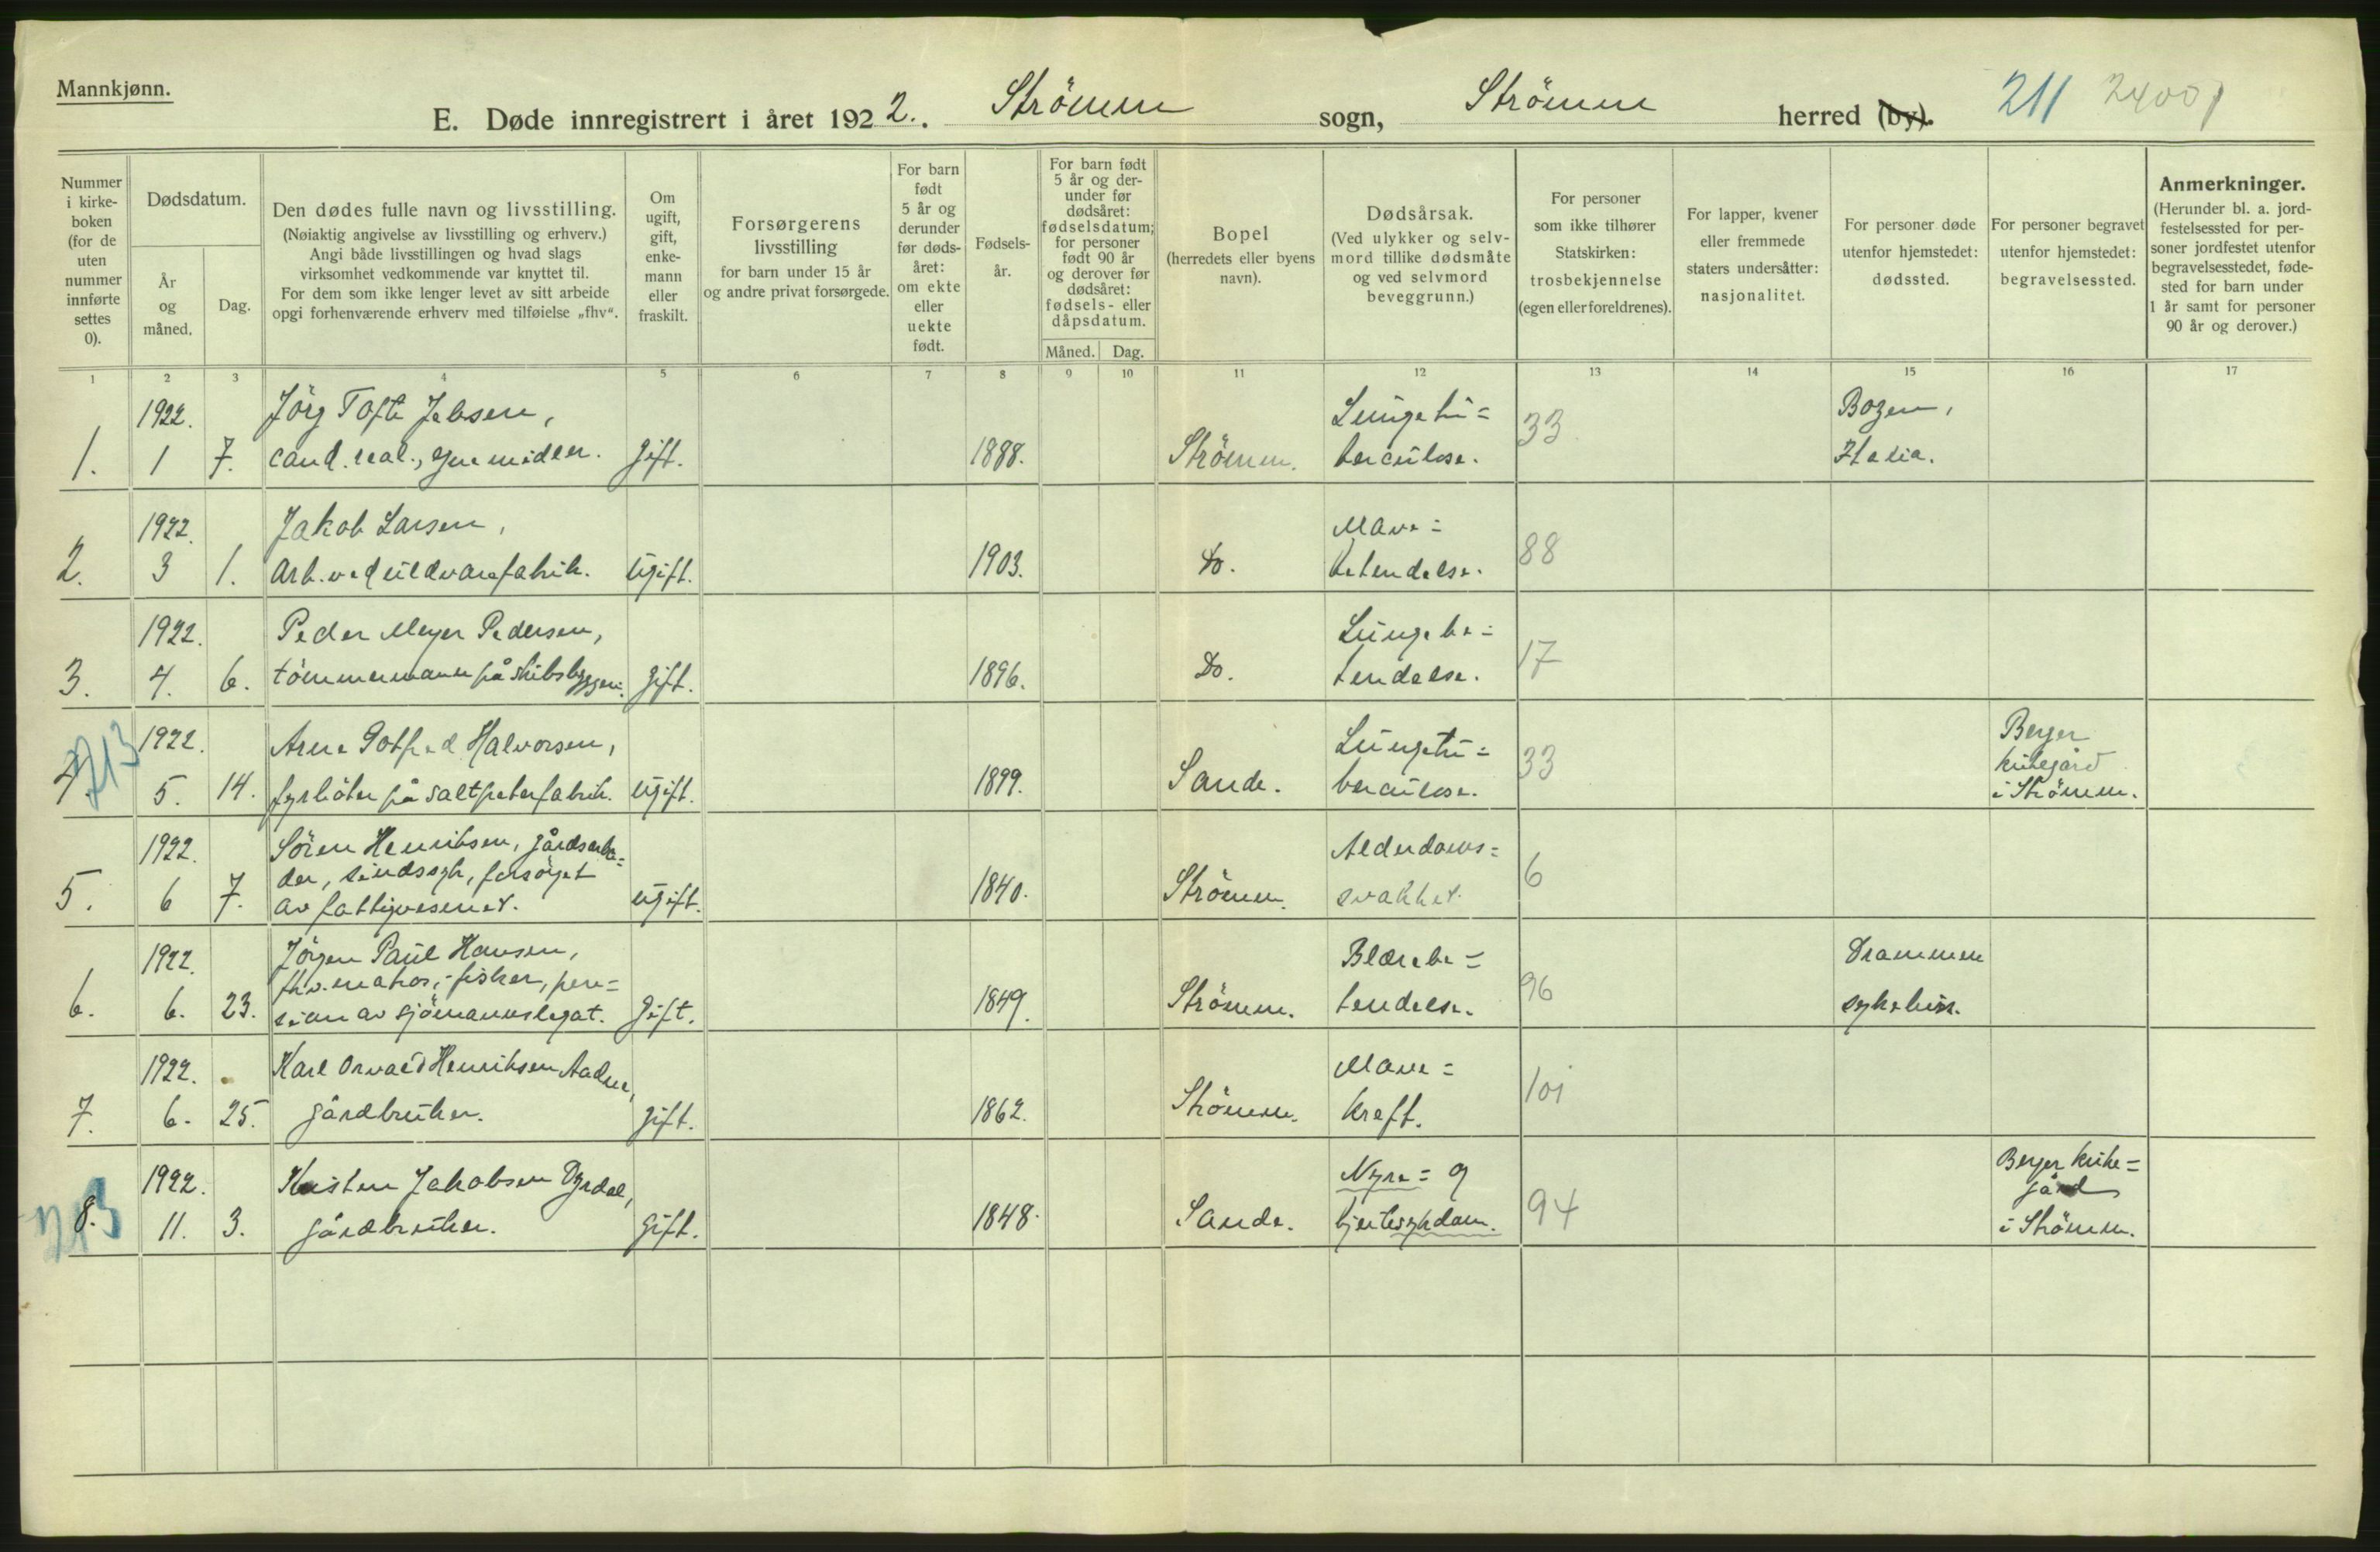 Mannkjønn.
E. Døde innregistrert i året 1922. Strömm sogn, Strömm herred (by).
211 2400
Nummer i kirkeboken (for de uten nummer innførte settes 0).
Dødsdatum.
År og måned.
Dag.
Den dødes fulle navn og livsstilling.
(Nøiaktig angivelse av livsstilling og erhverv.)
Angi både livsstillingen og hvad slags
virksomhet vedkommende var knyttet til.
For dem som ikke lenger levet av sitt arbeide
opgi forhenværende erhverv med tilføielse „fhv“.
Om ugift, gift, enkemann eller fraskilt.
Forsørgerens livsstilling
for barn under 15 år
og andre privat forsørgede.
For barn født 5 år og derunder før dødsåret: om ekte eller uekte født.
Fødselsår.
For barn født 5 år og derunder før dødsåret: fødselsdatum; for personer født 90 år og derover før dødsåret: fødsels- eller dåpsdatum.
Måned. Dag.
Bopel
(herredets eller byens navn).
Dødsårsak.
(Ved ulykker og selvmord tillike dødsmåte og ved selvmord beveggrunn.)
For personer som ikke tilhører Statskirken: trosbekjennelse (egen eller foreldrenes).
For lapper, kvener eller fremmede staters undersåtter: nasjonalitet.
For personer døde utenfor hjemstedet: dødssted.
For personer begravet utenfor hjemstedet: begravelsessted.
Anmerkninger.
(Herunder bl. a. jordfestelsessted for personer jordfestet utenfor begravelsesstedet, fødested for barn under 1 år samt for personer 90 år og derover.)
1 2 3 4 5 6 7 8 9 10 11 12 13 14 15 16 17
1922. Jörg Tofte Jebsen, Lungetu= 33 Bozen,
1. 1 7. cand. real., egne midler. Gift. 1888. Strömm. berculose. Italia.
1922. Jakob Larsen, Mave= 88
2. 3 1. Arb. ved uldvarefabrik. Ugift. 1903. Do. betendelse.
1922. Peder Meyer Pedersen, Lungebe= 17
3. 4. 6. tömmermann på skibsbyggeri. Gift. 1896. Do. tendelse.
213 1922. Arne Gotfred Halvorsen, Lungetu= 33 Berger
4. 5. 14. fyrböter på saltpeterfabrik. Ugift. 1899. Sande. berculose. kirkegård
i Strömm.
1922. Sören Henriksen, gårdsarbei=
der, sindssyk, forsörget Alderdoms= 6
5. 6 7. av fattigvesenet. Ugift. 1840. Strömm. svakhet.
1922. Jörgen Paul Hansen, Blærebe= 96 Drammen
fhv. matros, fisker, pen=
6. 6. 23. sion av sjömannslegat. Gift. 1849. Strömm. tendelse. sykehus.
1922. Karl Orvald Henriksen Aadne, Mave= 101
7. 6. 25. gårdbruker. Gift. 1862. Strömm. kreft.
213 1922. Kristen Jakobsen Dyrdal, Nyre= og 94 Berger kirke=
gård
8. 11. 3. gårdbruker. Gift. 1848. Sande. hjertesykdom. i Strömm.